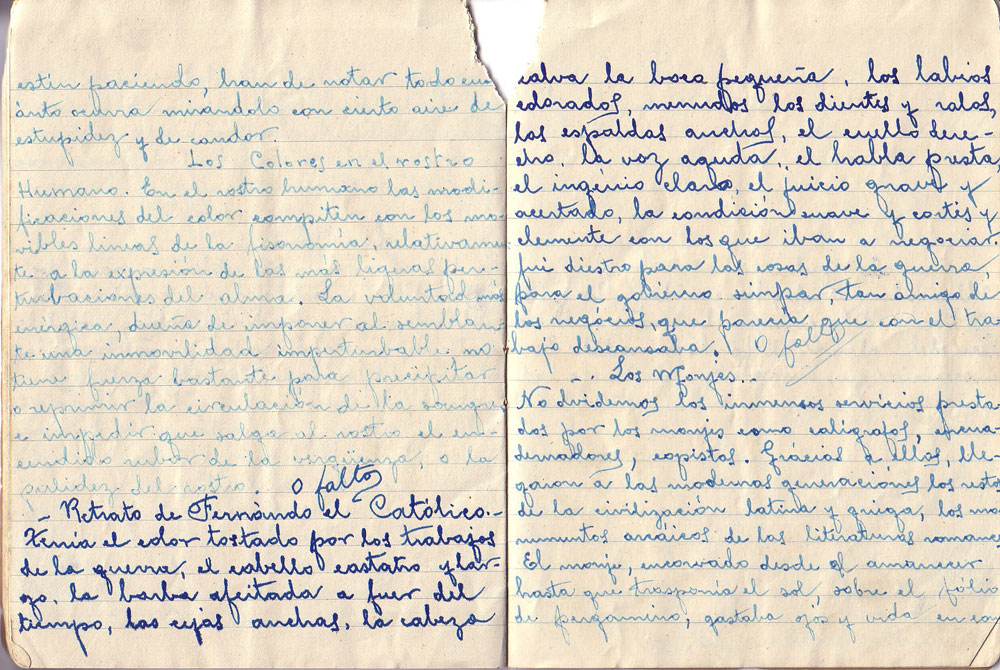 estén paciendo, han de notar todo cu-
ánto ocurra mirándolo con cierto aire de
estupidez y de candor.
Los Colores en el rostro
Humano. En el rostro humano las modi-
ficaciones del color compiten con los mo-
vibles lineas de la fisonomía, relativamen-
te a la expresión de las más ligeras per-
turbaciones del alma. La voluntad más
enérgica, dueña de imponer al semblan-
te una inmovilidad imperturbable. no
tiene fuerza bastante para precipitar
o reprimir la circulación de la sangre
e impedir que salga al rostro el en-
cendido rubor de la vergüenza, o la
palidez del rostro. 0 faltas
- Retrato de Fernando el Católico.-
Tenía el color tostado por los trabajos
de la guerra, el cabello castaño y lar-
go. la barba afeitada a fuer del
tiempo, las cejas anchas, la cabeza
calva la boca pequeña, los labios
colorados, menudos los dientes y ralos,
las espaldas anchas, el cuello dere-
cho, la voz aguda, el habla presta,
el ingénio claro, el juicio grave y
acertado, la condición suave y cortés y
clemente con los que iban a negociar.
fui diestro para las cosas de la guerra,
para el gobierno simpar, tan amigo de
los negócios, que parecía que con el tra-
bajo descansaba. 0 faltas
-. Los Monjes. -
No olvidemos los inmensos servicios presta-
dos por los monjes como calígrafos, encua-
dernadores, copistas. Grácias a ellos, lle-
garon a las modernas generaciones los restos
de la civilización latina y griega, los mo-
numentos arcáicos de las literaturas romance
El monje, encorvado desde el amanecer
hasta que trasponía el sol, sobre el fólio
de pergamino, gastaba ojos y vida en